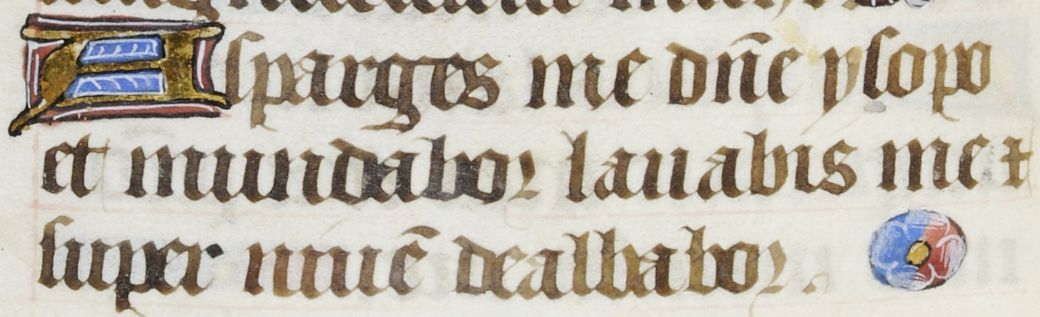 Asparges me dñe ysopo
et mundabor lauabis me ⁊
super niuē dealbabor.